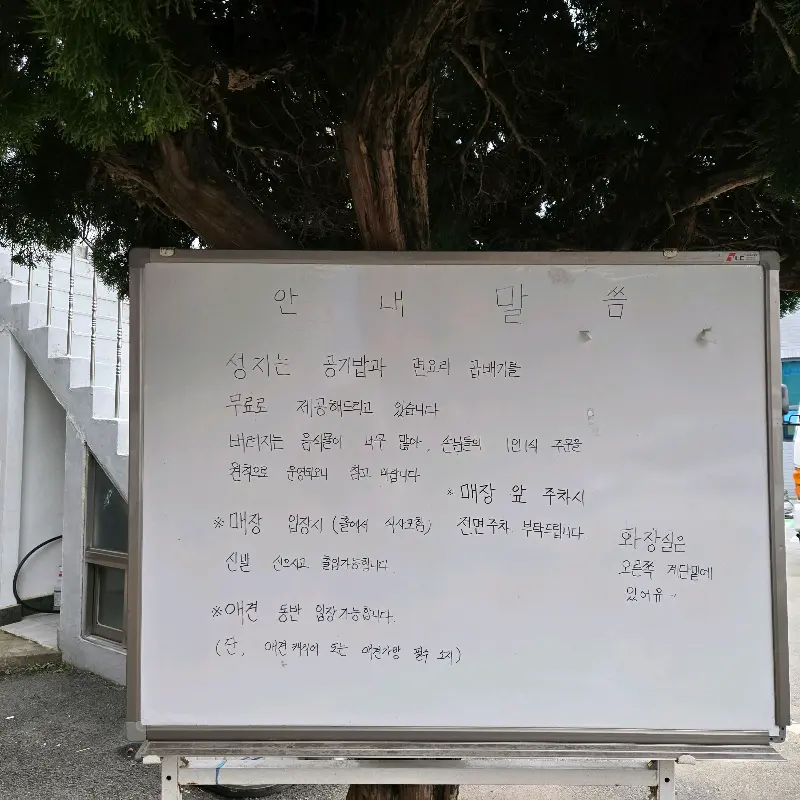 안 내 말 씀
성지는 공기밥과 면요리 곱배기를
무료로 제공해드리고 있습니다
버려지는 음식물이 너무 많아, 손님들의 1인1식 주문을
원칙으로 운영되오니 참고 바랍니다
※ 매장 앞 주차시
전면주차 부탁드립니다
※매장 입장시 (홀에서 식사포함)
신발 신으시고 출입가능합니다.
화장실은
오른쪽 계단밑에
있어유~
※애견 동반 입장가능합니다.
(단, 애견캐리어 또는 애견가방 필수 소지)